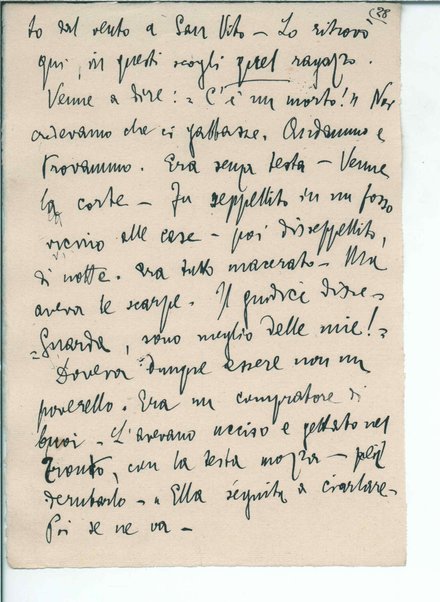 (28
to dal vento a San Vito – Lo ritrovò
qui, in questi scogli quel ragazzo.
Venne a dire: "C'è un morto!" Non
credevamo che ci gabbasse. Andammo e
trovammo. Era senza testa – Venne
la corte – Fu seppellito in un fosso
vicino alle case – poi disseppellito,
di notte. era tutto macerato – Ma
aveva le scarpe. Il giudice disse –
"Guarda, sono meglio delle mie!"
Doveva dunque essere non un
poverello. Era un compratore di
buoi – L'avevano ucciso e gettato nel
Tronto, con la testa mozza – per
derubarlo – "Ella séguita a ciarlare –
Poi se ne va –